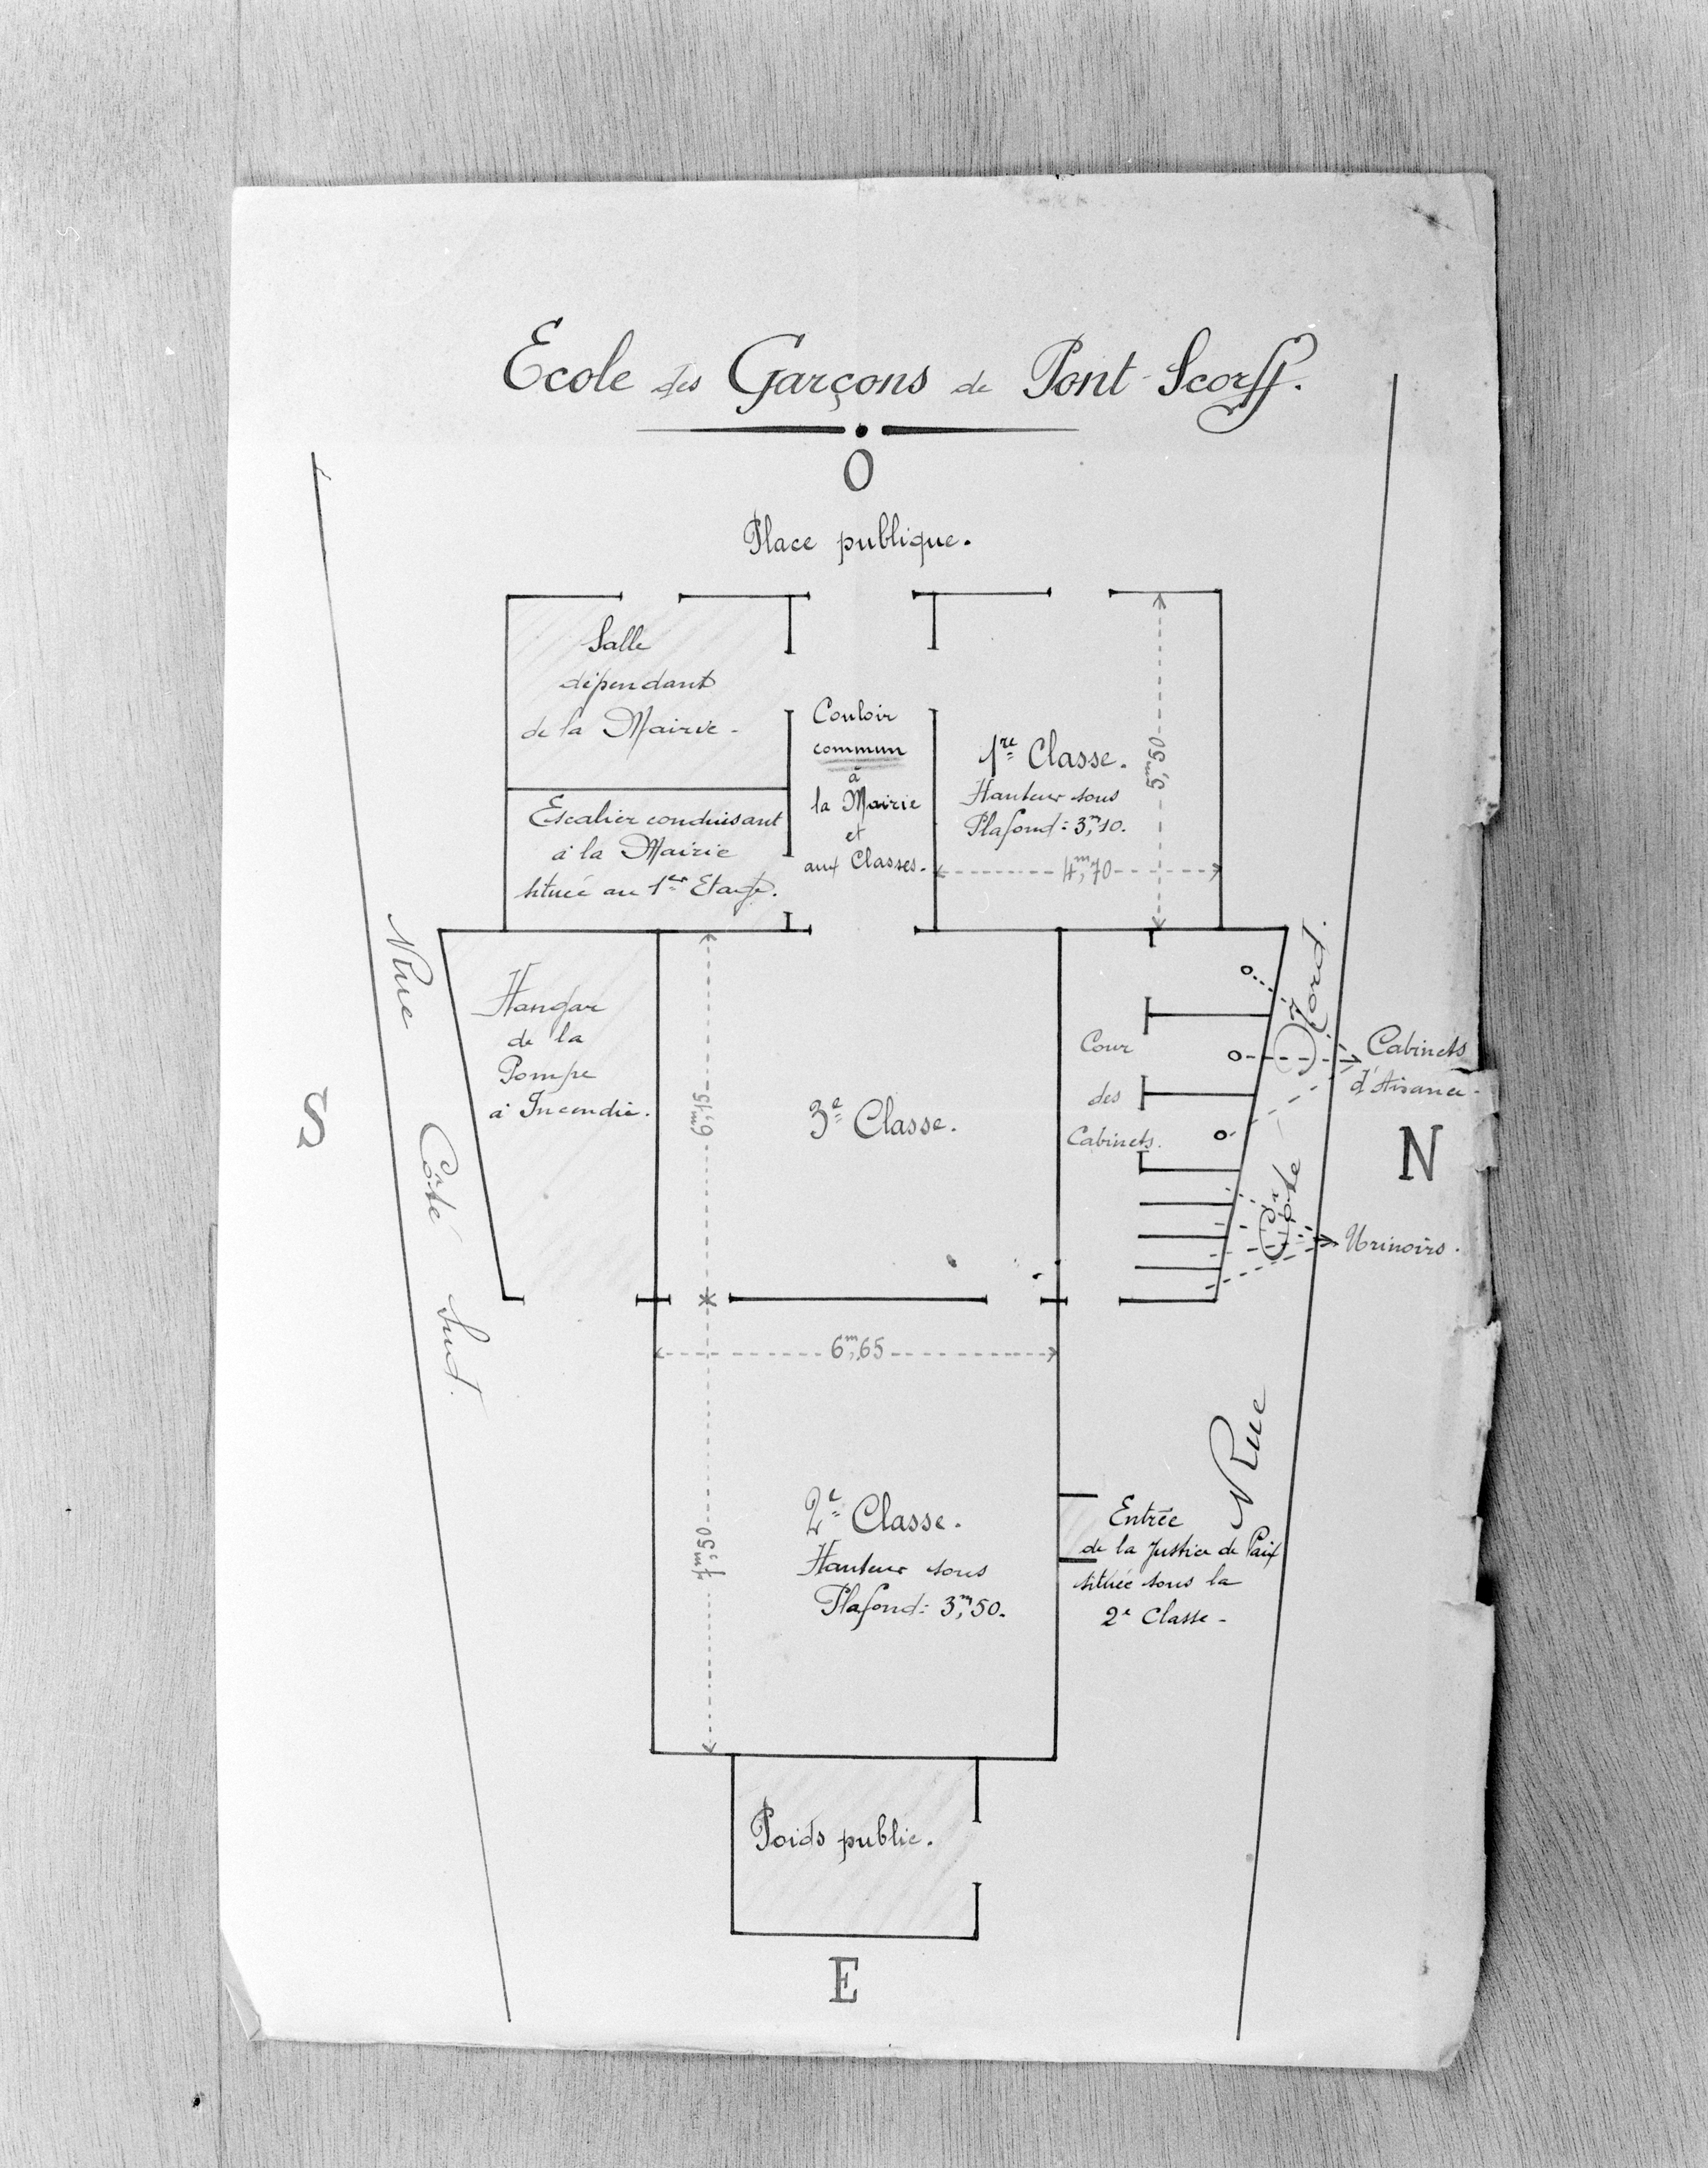 Ecole des Garçons de Pont-Scorff.
O
Place publique.
Salle
dépendant
de la Mairie.
Escalier conduisant
à la Mairie
située au 1er Etage.
Couloir
commun
à
la Mairie
et
aux Classes.
1re Classe.
Hauteur sous
Plafond : 3m,10.
5m,50
4m,70
Rue Côté Sud.
S
Hangar
de la
Pompe
à Incendie.
6m,15
3e Classe.
Cour
des
Cabinets.
Rue Côté du Nord.
Cabinets
d'Aisance.
N
Urinoirs.
6m,65
7m,50
2e Classe.
Hauteur sous
Plafond : 3m,50.
Entrée
de la Justice de Paix
située sous la
2e Classe.
Poids public.
E